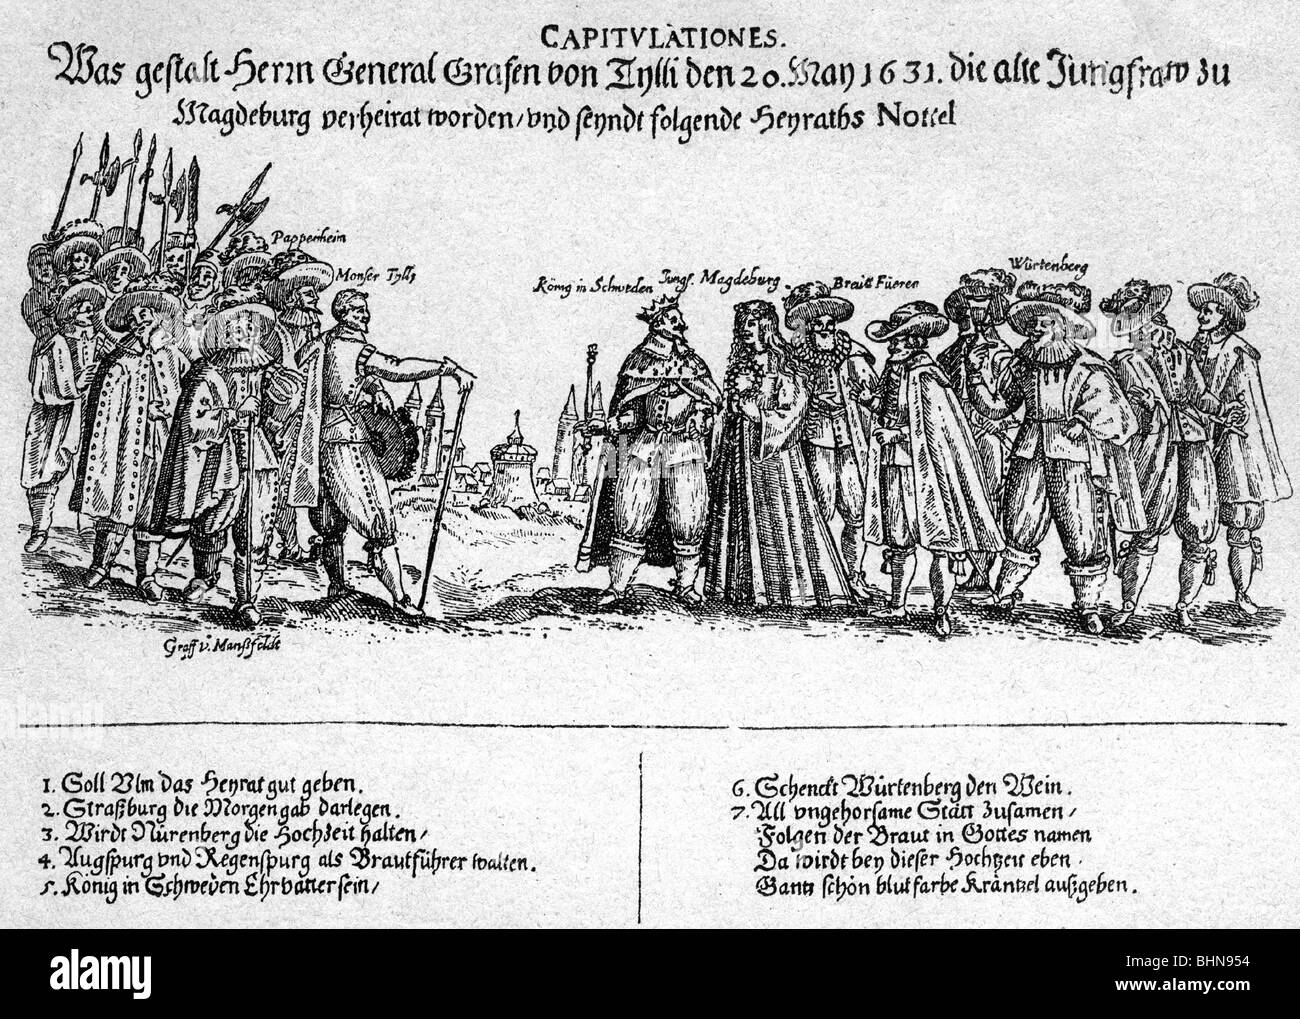 CAPITVLATIONES.
Was gestalt Herrn General Grafen von Tylli den 20. May 1631. die alte Jungfraw zu
Magdeburg verheirat worden/ vnd seyndt folgende Heyraths Nottel
Pappenheim
Monser Tylli
König in Schweden
Jungf. Magdeburg.
Braut Füerer
Würtenberg
Graff v. Manßfeldt
1. Soll Ulm das Heyrat gut geben.
2. Straßburg die Morgengab darlegen.
3. Wirdt Nürenberg die Hochzeit halten/
4. Augspurg vnd Regenspurg als Brautführer walten.
5. König in Schweden Ehrvatter sein/
6. Schenckt Würtenberg den Wein.
7. All vngehorsame Stätt zusamen/
Folgen der Braut in Gottes namen
Da wirdt bey dieser Hochzeit eben.
Gantz schön blutfarbe Kräntzel außgeben.
alamy
Image ID: BHN954
www.alamy.com